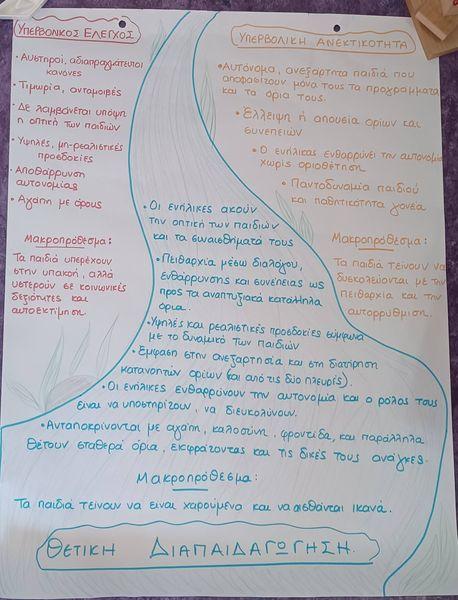 Υπερβολικός Έλεγχος
• Αυστηροί, αδιαπραγμάτευτοι
κανόνες
• Τιμωρία, ανταμοιβές
• Δε λαμβάνεται υπόψη
η οπτική των παιδιών
• Υψηλές, μη-ρεαλιστικές
προσδοκίες
• Αποθάρρυνση
αυτονομίας
• Αγάπη με όρους
Μακροπρόθεσμα:
Τα παιδιά υπερέχουν
στην υπακοή, αλλά
υστερούν σε κοινωνικές
δεξιότητες και
αυτοεκτίμηση.
Υπερβολική Ανεκτικότητα
• Αυτόνομα, ανεξάρτητα παιδιά που
αποφασίζουν μόνα τους τα προγράμματα
και τα όρια τους.
• Έλλειψη ή απουσία ορίων και
συνεπειών
• Ο ενήλικας ενθαρρύνει την αυτονομία
χωρίς οριοθέτηση
• Παντοδυναμία παιδιού
και παθητικότητα γονέα
Μακροπρόθεσμα:
Τα παιδιά τείνουν να
δυσκολεύονται με την
πειθαρχία και την
αυτορρύθμιση.
• Οι ενήλικες ακούν
την οπτική των παιδιών
και τα συναισθήματά τους
• Πειθαρχία μέσω διαλόγου,
ενθάρρυνσης και συνέπειας ως
προς τα αναπτυξιακά κατάλληλα
όρια.
• Υψηλές και ρεαλιστικές προσδοκίες σύμφωνα
με το δυναμικό των παιδιών
• Έμφαση στην ανεξαρτησία και στη διατήρηση
κατανοητών ορίων (και από τις δύο πλευρές).
• Οι ενήλικες ενθαρρύνουν την αυτονομία και ο ρόλος τους
είναι να υποστηρίζουν, να διευκολύνουν.
• Ανταποκρίνονται με αγάπη, καλοσύνη, φροντίδα, και παράλληλα
θέτουν σταθερά όρια, εκφράζοντας και τις δικές τους ανάγκες.
Μακροπρόθεσμα:
Τα παιδιά τείνουν να είναι χαρούμενα και να αισθάνονται ικανά.
Θετική Διαπαιδαγώγηση.